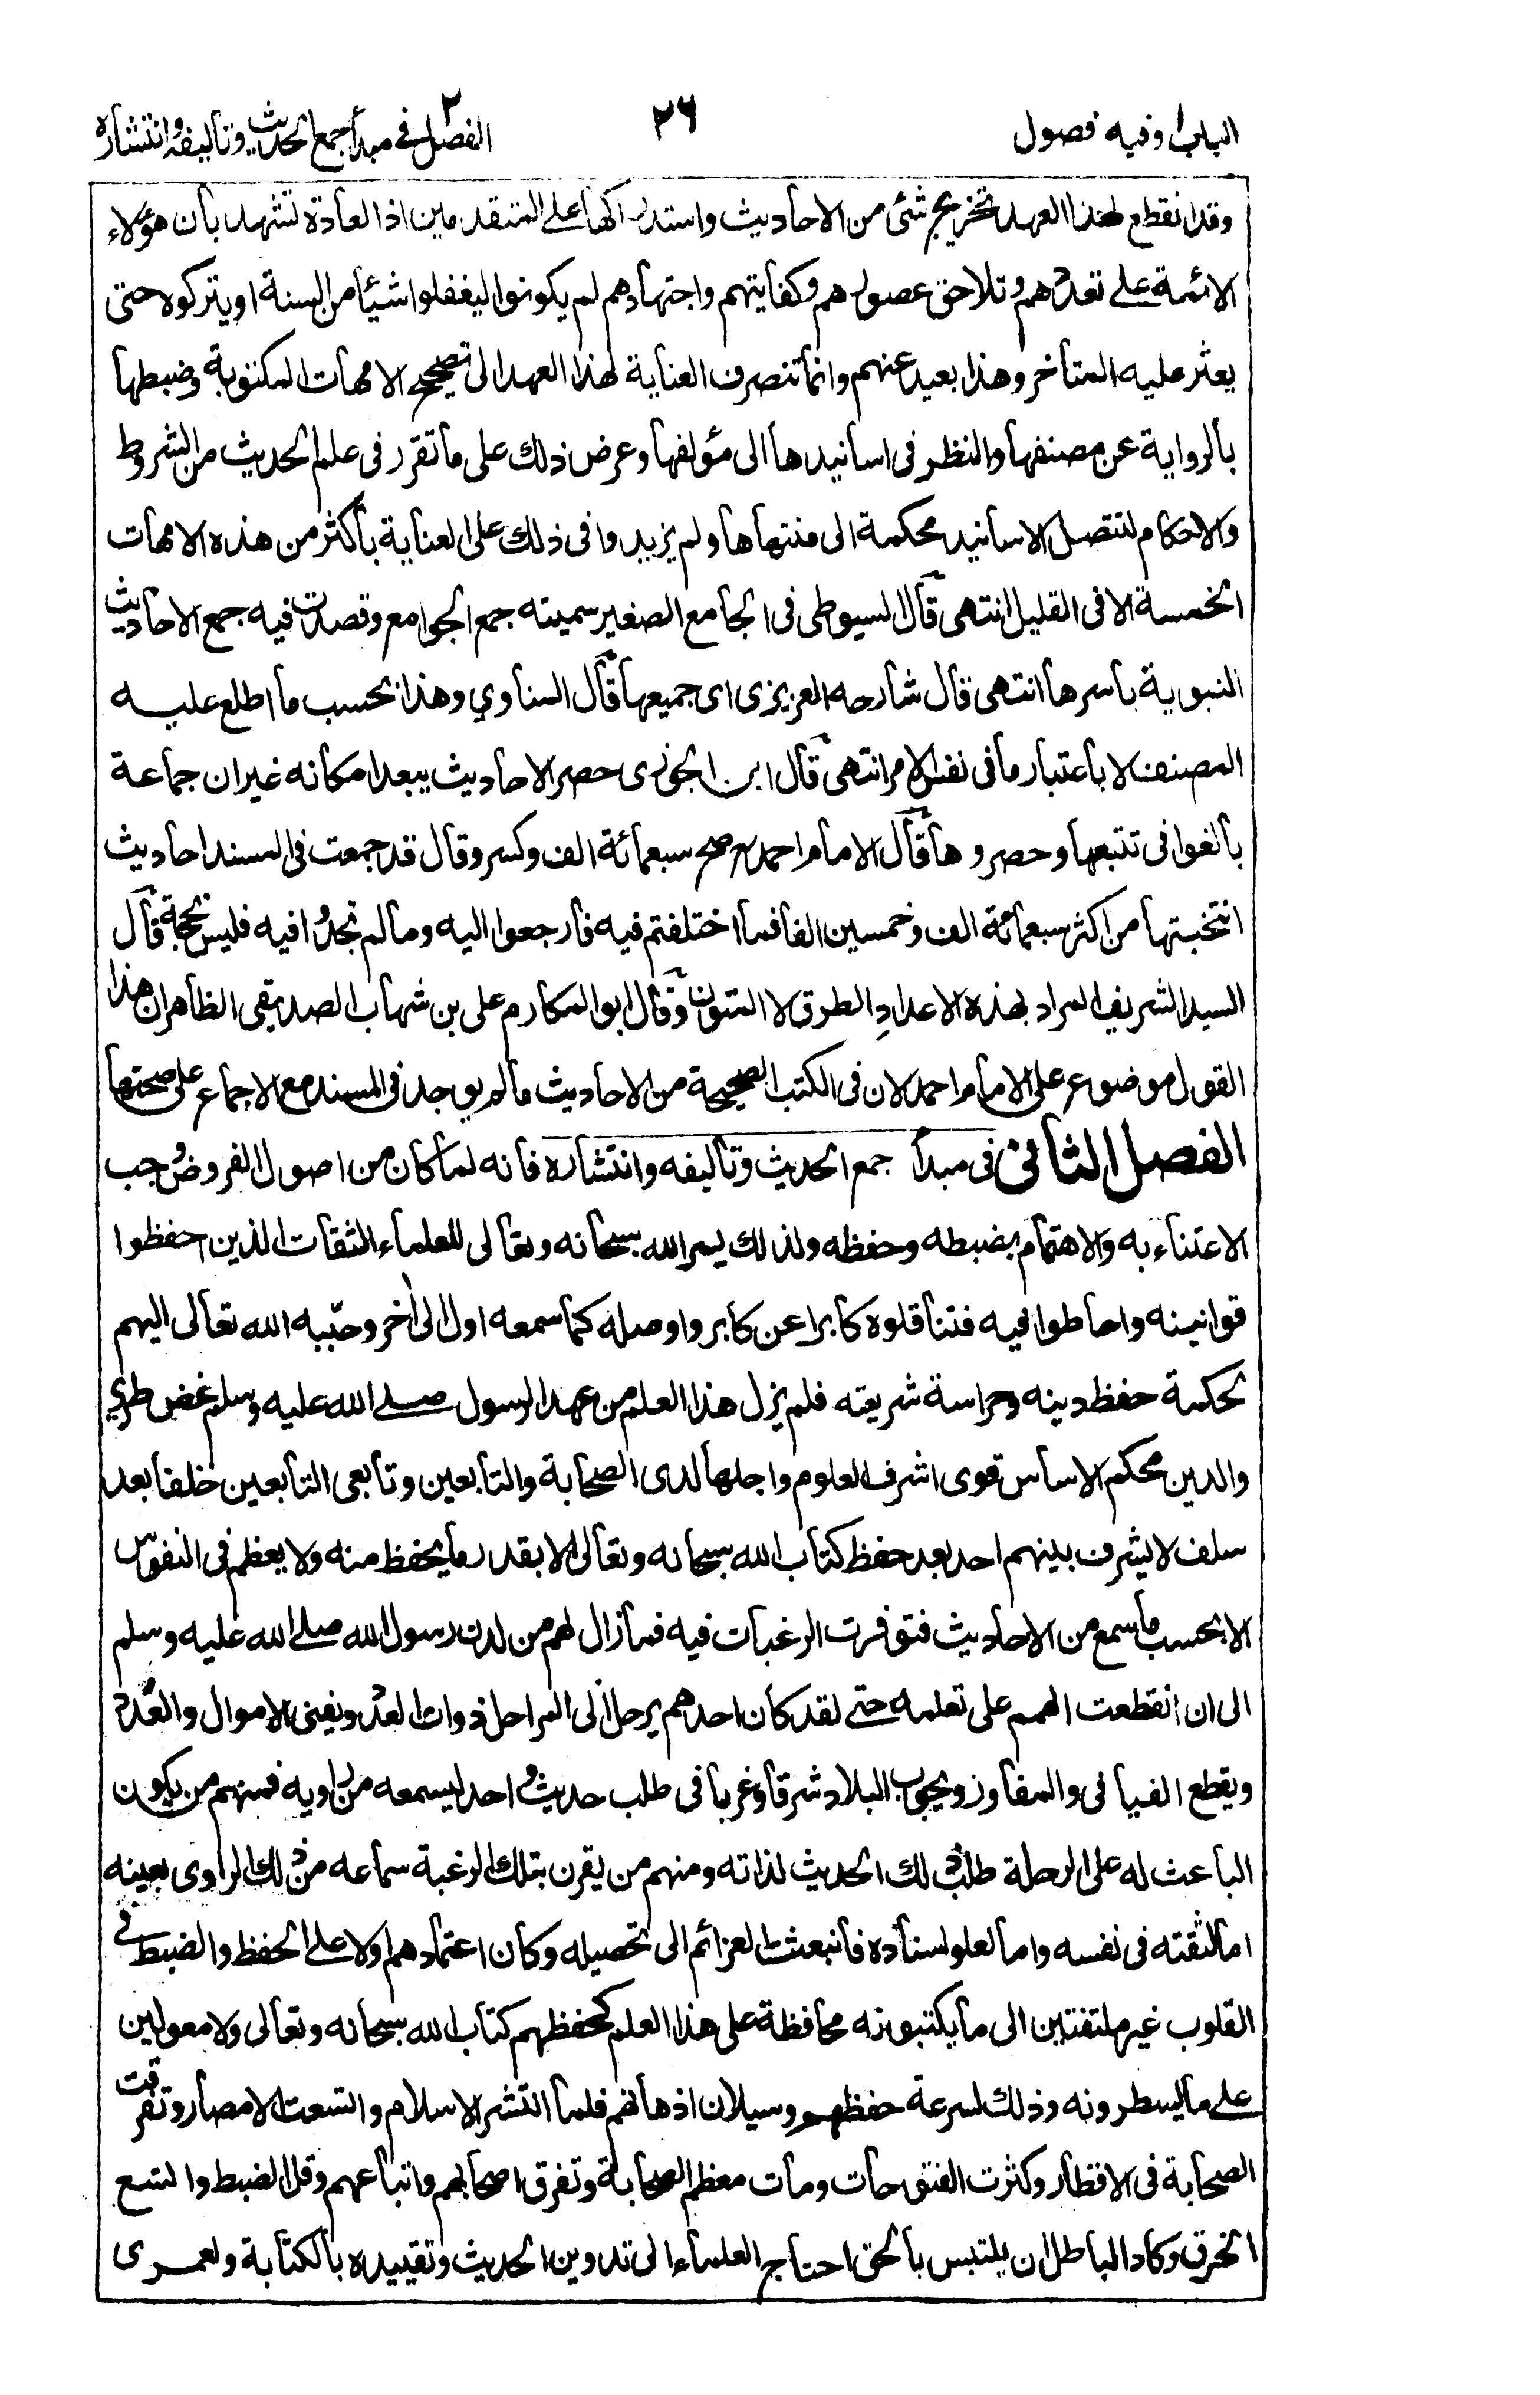 الباب ا وفيه فصول
٢٦
الفصل ٢ في مبدأ جمع الحديث وتأليفه وانتشاره
وقد انقطع لهذا العهد تخريج شئ من الاحاديث واستدراكها على المتقدمين اذ العادة تشهد بأن هؤلاء
الائمة على تعددهم وتلاحق عصورهم وكفايتهم واجتهادهم لم يكونوا ليغفلوا شيئا من السنة او يتركوه حتى
يعثر عليه المتأخر وهذا بعيد عنهم وانما تنصرف العناية لهذا العهد الى تصحيح الامهات المكتوبة وضبطها
بالرواية عن مصنفها والنظر في اسانيدها الى مؤلفها وعرض ذلك على ما تقرر في علم الحديث من الشروط
والاحكام لتتصل الاسانيد محكمة الى منتهاها ولم يزيدوا في ذلك على العناية بأكثر من هذه الامهات
الخمسة الا في القليل انتهى قال السيوطي في الجامع الصغير سميته جمع الجوامع وقصدت فيه جمع الاحاديث
النبوية بأسرها انتهى قال شارحه العزيزي اى جميعها قال المناوي وهذا بحسب ما اطلع عليه
المصنف لا باعتبار ما في نفس الامر انتهى قال ابن الجوزى حصر الاحاديث يبعد امكانه غير ان جماعة
بالغوا في تتبعها وحصروها قال الامام احمد صح سبعمائة الف وكسر وقال قد جمعت في المسند احاديث
انتخبتها من اكثر سبعمائة الف وخمسين الفا فما اختلفتم فيه فارجعوا اليه وما لم تجدوا فيه فليس بحجة قال
السيد الشريف المراد بهذه الاعداد الطرق لا المتون وقال ابو المكارم على بن شهاب الصديقي الظاهر ان هذا
القول موضوع على الامام احمد لان في الكتب الصحيحة من الاحاديث ما لم يوجد في المسند مع الاجماع على صحتها
الفصل الثاني في مبدأ جمع الحديث وتأليفه وانتشاره فانه لما كان من اصول الفروض وجب
الاعتناء به والاهتمام بضبطه وحفظه ولذلك يسر الله سبحانه وتعالى للعلماء الثقات الذين احفظوا
قوانينه واحاطوا فيه فتناقلوه كابرا عن كابر واوصله كما سمعه اول الى اخر وحببه الله تعالى اليهم
لحكمة حفظ دينه وحراسة شريعته فلم يزل هذا العلم من عهد الرسول صلى الله عليه وسلم غض طري
والدين محكم الاساس قوى اشرف العلوم واجلها لدى الصحابة والتابعين وتابعي التابعين خلفا بعد
سلف لا يشرف بينهم احد بعد حفظ كتاب الله سبحانه وتعالى الا بقدر ما يحفظ منه ولا يعظم في النفوس
الا بحسب ما سمع من الاحاديث فتوفرت الرغبات فيه فما زال لهم من لدن رسول الله صلى الله عليه وسلم
الى ان انقطعت الهمم على تعلمه حتى لقد كان احدهم يرحل الى المراحل ذوات العدد ويفنى الاموال والعدد
ويقطع الفيافي والمفاوز ويجوب البلاد شرقا وغربا في طلب حديث واحد ليسمعه من راويه فمنهم من يكون
الباعث له على الرحلة طلب ذلك الحديث لذاته ومنهم من يقرن بتلك الرغبة سماعه من ذلك الراوى بعينه
اما لثقته في نفسه واما لعلو اسناده فانبعثت العزائم الى تحصيله وكان اعتمادهم اولا على الحفظ والضبط في
القلوب غير ملتفتين الى ما يكتبونه محافظة على هذا العلم كحفظهم كتاب الله سبحانه وتعالى ولا معولين
على ما يسطرونه وذلك لسرعة حفظهم وسيلان اذهانهم فلما انتشر الاسلام واتسعت الامصار وتفرقت
الصحابة في الاقطار وكثرت الفتوحات ومات معظم الصحابة وتفرق اصحابهم واتباعهم وقل الضبط واتسع
الخرق وكاد الباطل ان يلتبس بالحق احتاج العلماء الى تدوين الحديث وتقييده بالكتابة ولعمرى